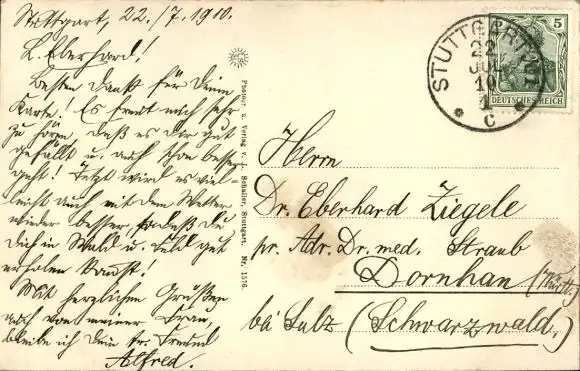 Stuttgart, 22./7. 1910.
L. Eberhard!
Besten Dank für Deine
Karte! Es freut mich sehr
zu hören, daß es Dir gut
gefällt u. auch schon besser
geht! Jetzt wird es viel-
leicht auch mit dem Wetter
wieder besser, sodaß Du
Dich in Wald u. Feld gut
erholen kannst!
Mit herzlichen Grüßen
auch von meiner Frau,
bleibe ich Dein tr. Freund
Alfred.
Photogr. u. Verlag v. J. Schaller, Stuttgart. Nr. 1576.
STUTTGART
22
JUL
10
1
C
5
DEUTSCHES REICH
Herrn
Dr. Eberhard Ziegele
pr. Adr. Dr. med. Straub
Dornhan (Württ.)
bei Sulz (Schwarzwald.)